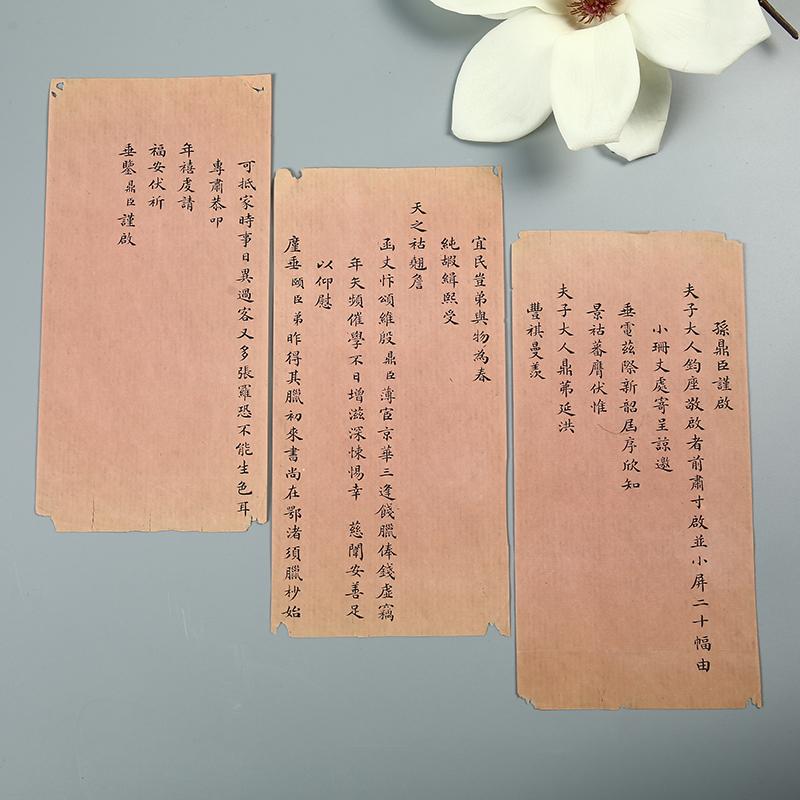 孫鼎臣謹啟
夫子大人鈞座敬啟者前肅寸啟並小屏二十幅由
小珊丈處寄呈諒邀
垂電茲際新韶屆序欣知
景祜蕃膺伏惟
夫子大人鼎茀延洪
豐祺曼羨
宜民豈弟與物為春
純嘏緝熙受
天之祜翹詹
函丈忭頌維殷鼎臣薄宦京華三逢餞臘俸錢虛竊
年矢頻催學不日增滋深悚惕幸 慈闈安善足
以仰慰
廑垂頤臣弟昨得其臘初來書尚在鄂渚須臘杪始
可抵家時事日異過客又多張羅恐不能生色耳
專肅恭叩
年禧虔請
福安伏祈
垂鑒鼎臣謹啟